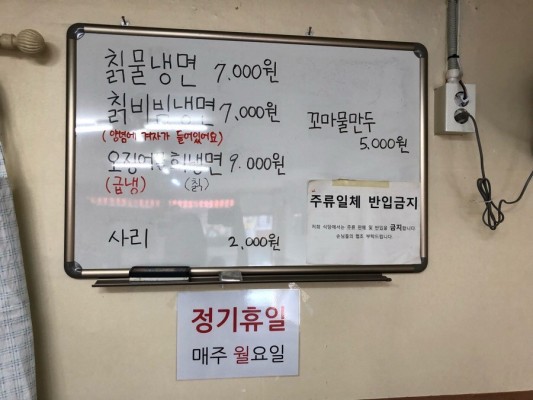 칡물냉면 7,000원
칡비빔냉면 7,000원
(양념에 겨자가 들어있어요)
오징어 회냉면 9,000원
(급냉) (칡)
사리 2,000원
꼬마물만두
5,000원
주류일체 반입금지
저희 식당에서는 주류 판매 및 반입을 금지합니다
손님들의 협조 부탁드립니다
정기휴일
매주 월요일